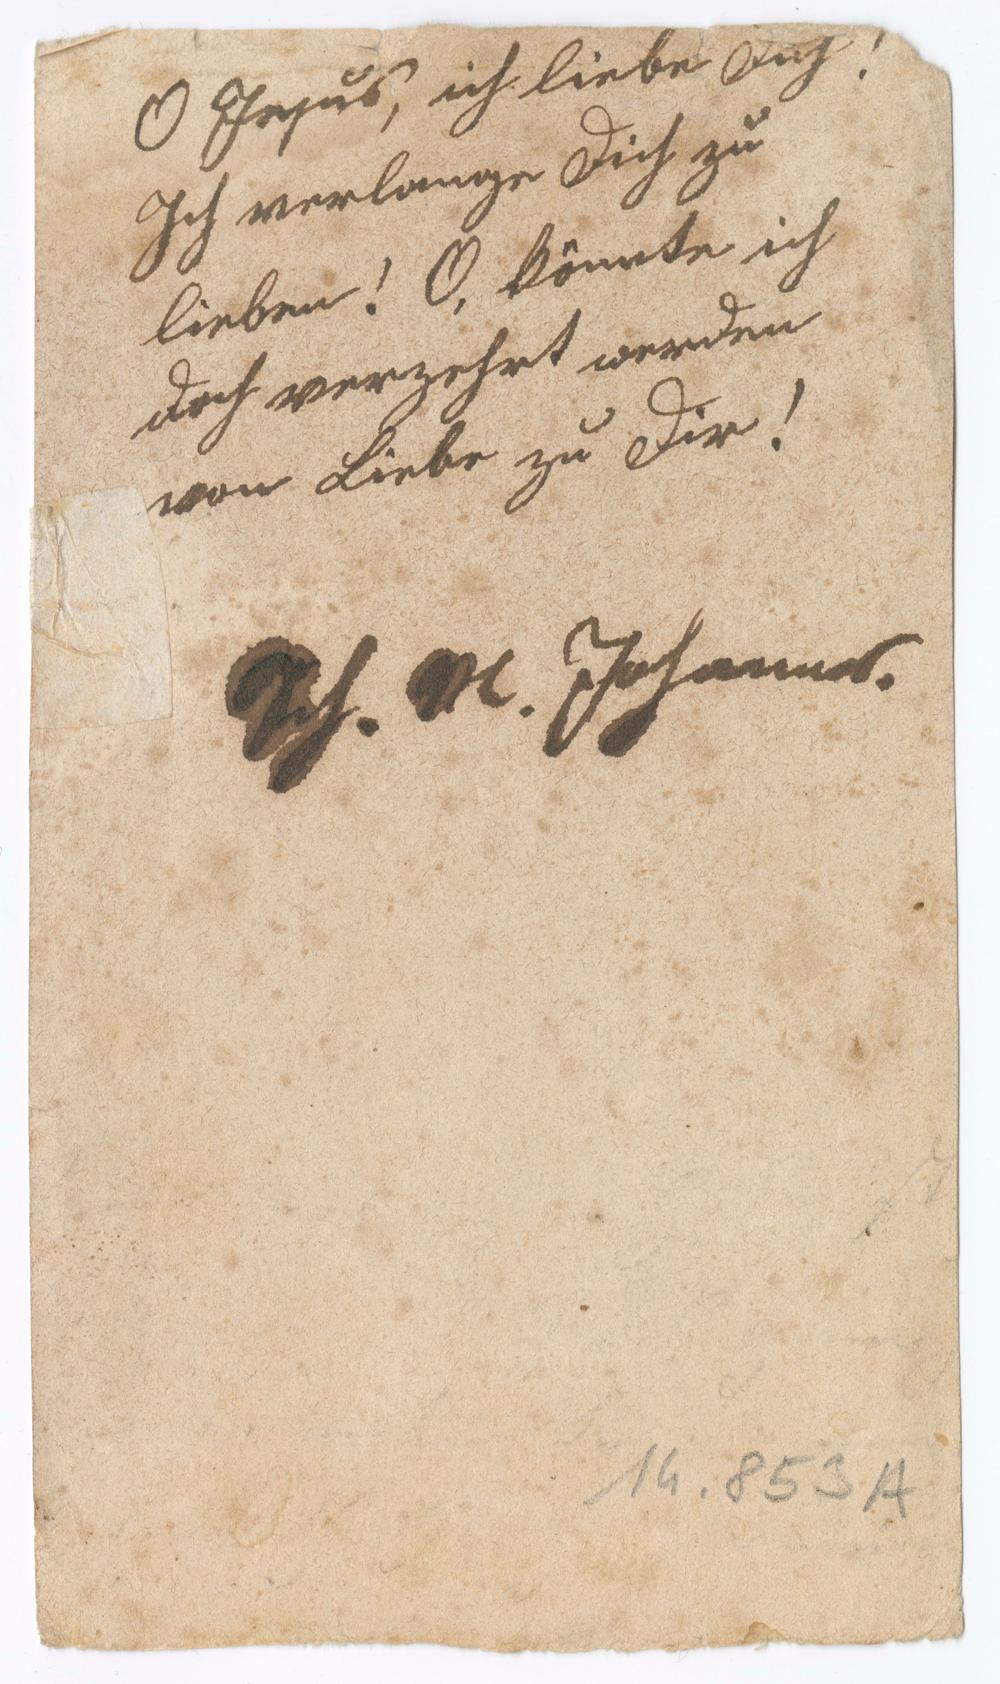 O Jesus, ich liebe Dich!
Ich verlange Dich zu
lieben! O, könnte ich
doch verzehrt werden
von Liebe zu Dir!
Sch. M. Johanna.
14.853A